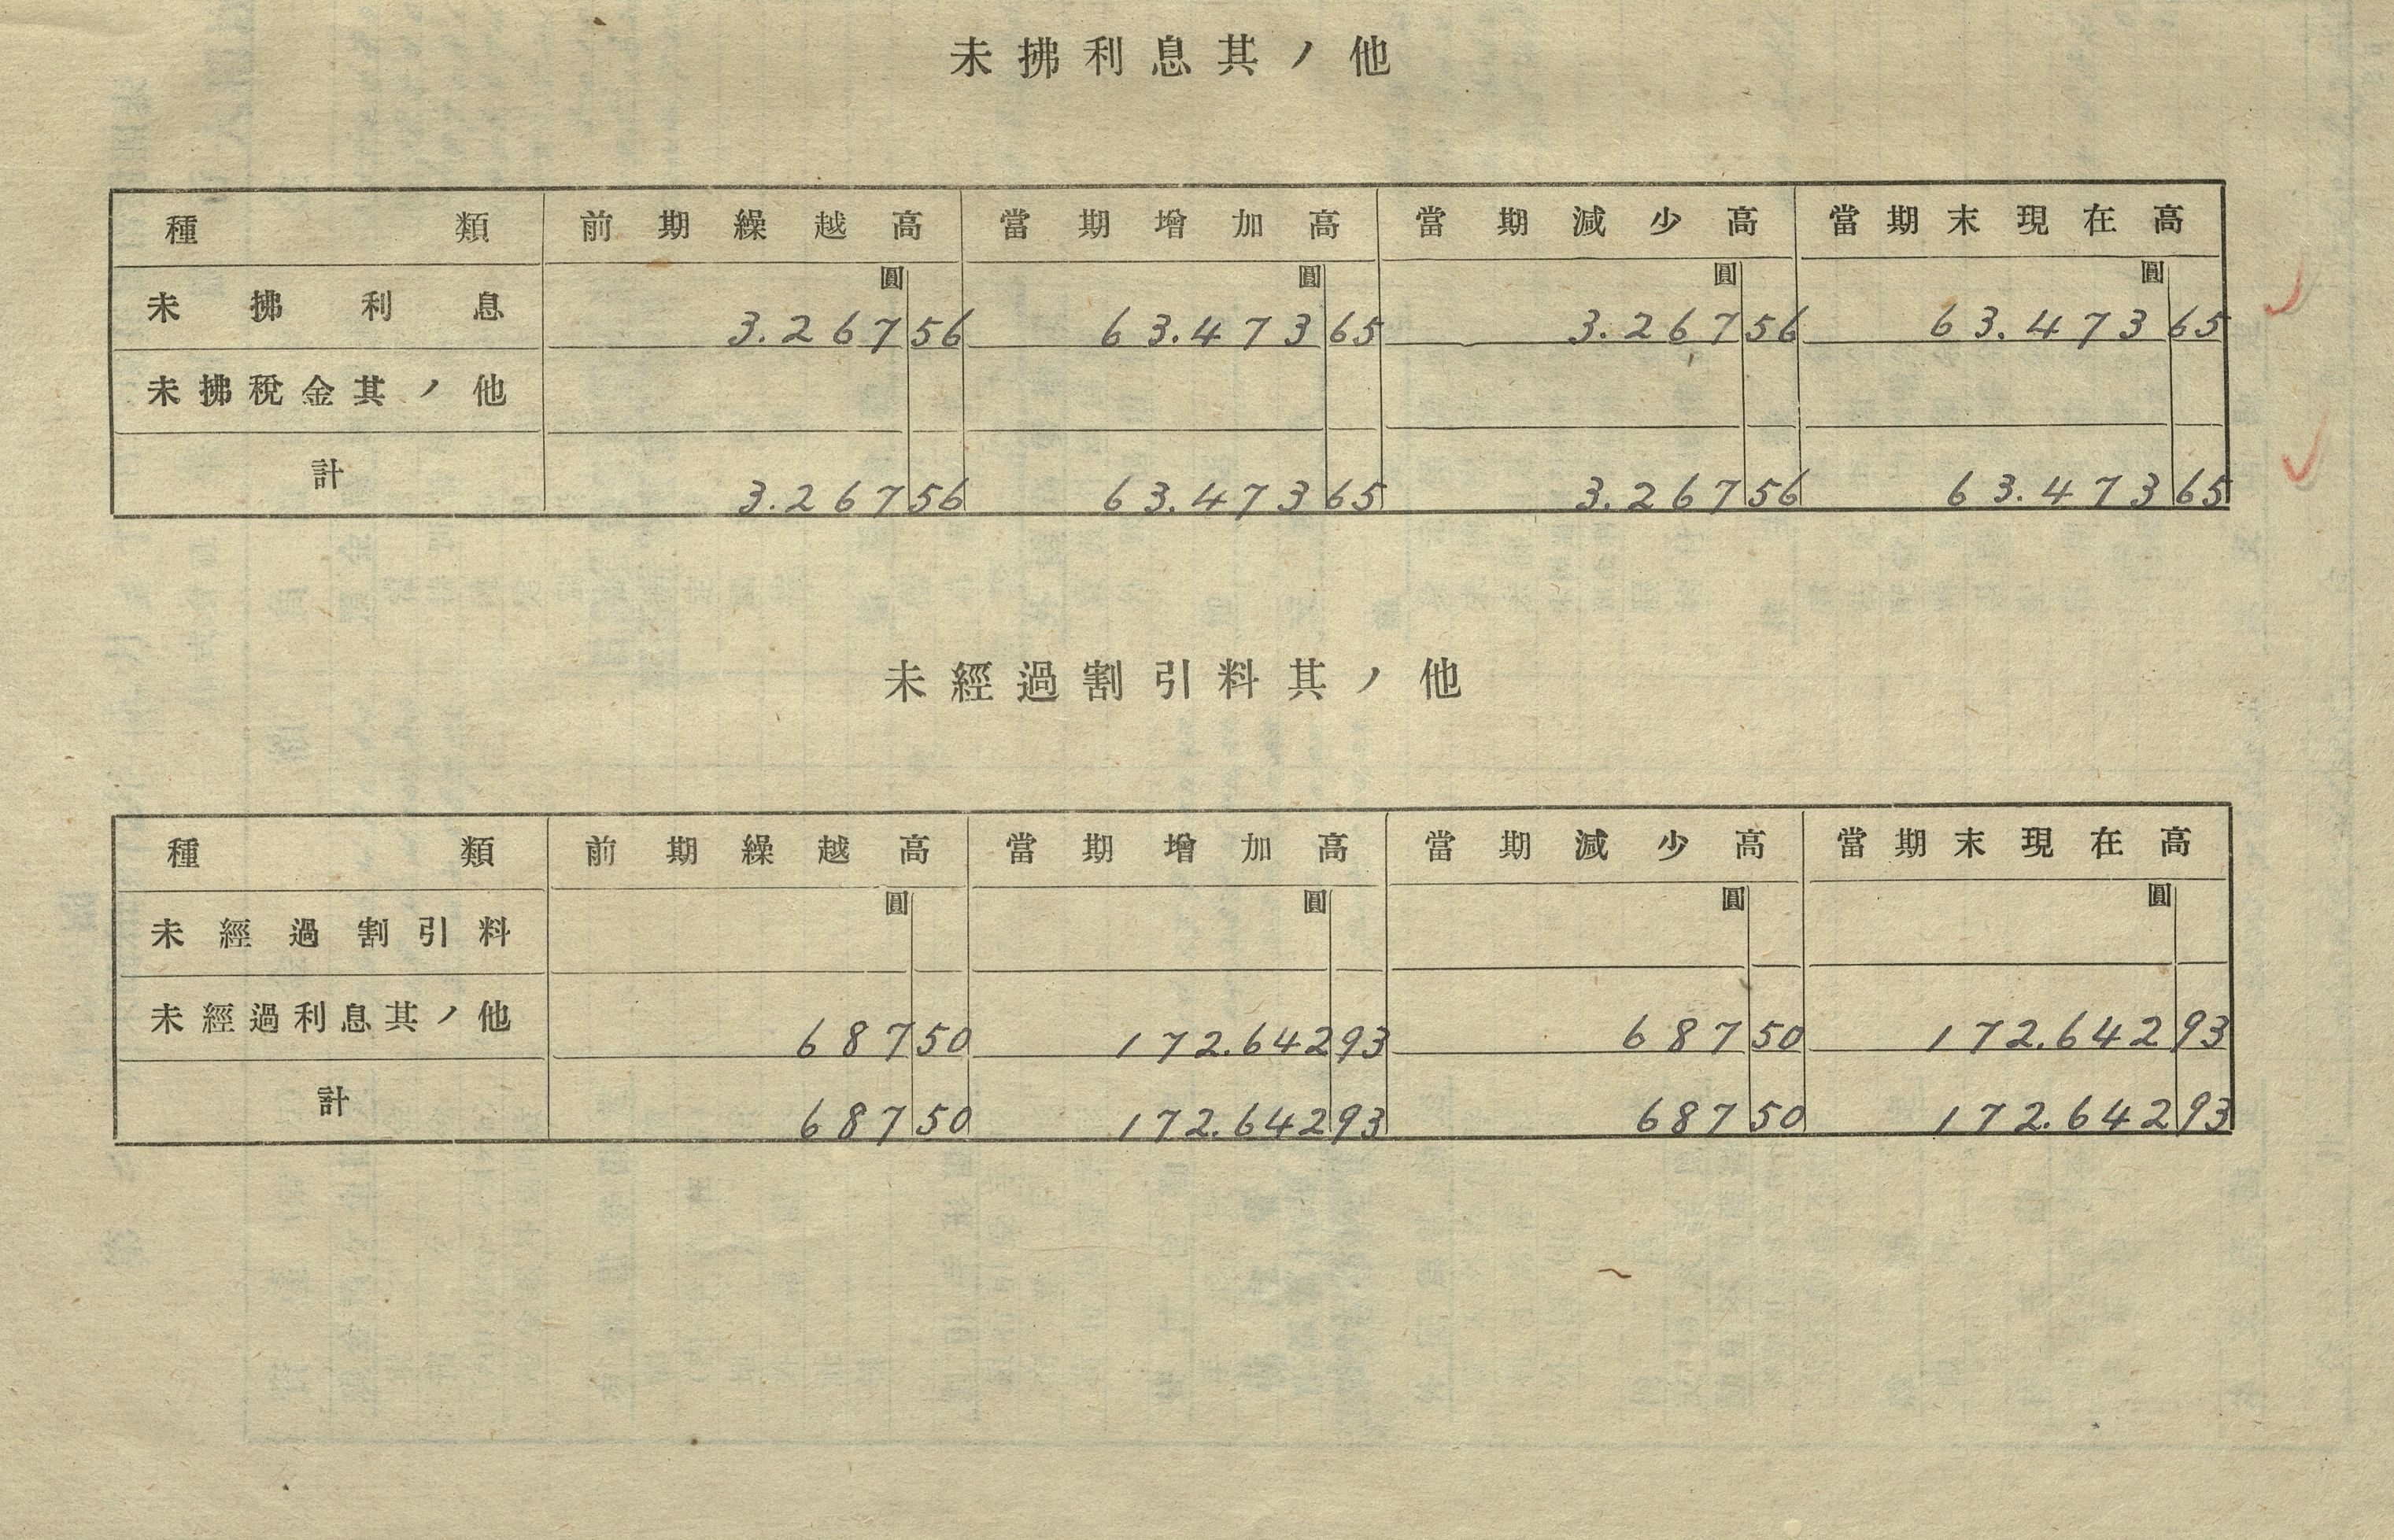 未拂利息其ノ他
種類 前期繰越高 當期增加高 當期減少高 當期末現在高
圓 圓 圓 圓
未拂利息 3.267 56 63.473 65 3.267 56 63.473 65
未拂稅金其ノ他
計 3.267 56 63.473 65 3.267 56 63.473 65
未經過割引料其ノ他
種類 前期繰越高 當期增加高 當期減少高 當期末現在高
圓 圓 圓 圓
未經過割引料
未經過利息其ノ他 687 50 172.642 93 687 50 172.642 93
計 687 50 172.642 93 687 50 172.642 93